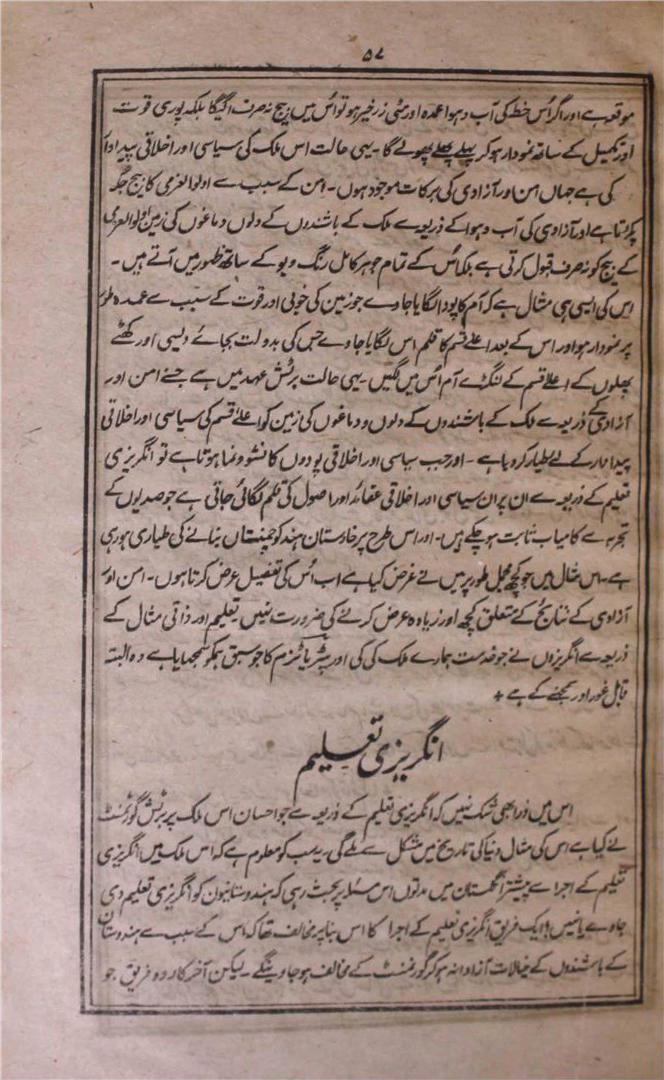 ۵۷
موقعہ ہے اور اگر اُس خطہ کی آب و ہوا عمدہ اور مٹی زرخیز ہو تو اُس میں بیج نہ صرف اُگیگا بلکہ پوری قوت
اور تکمیل کے ساتھ نمودار ہو کر پہلے پھلے پھولے گا ۔ یہی حالت اس ملک کی سیاسی اور اخلاقی پیداوار
کی ہے جہاں امن اور آزادی کی برکات موجود ہوں ۔ امن کے سبب سے اولوالعزمی کا بیج جگہ
پکڑتا ہے اور آزادی کی آب و ہوا کے ذریعہ سے ملک کے باشندوں کے دلوں دماغوں کی زمین اولوالعزمی
کے بیج کو نہ صرف قبول کرتی ہے بلکہ اُس کے تمام جوہر کامل رنگ و بو کے ساتھ ظہور میں آتے ہیں ۔
اس کی ایسی ہی مثال ہے کہ آم کا پودا لگایا جاوے جو زمین کی خوبی اور قوت کے سبب سے عمدہ طور
پر نمودار ہو اور اس کے بعد اعلےٰ قسم کا قلم اس لگایا جاوے جس کی بدولت بجائے دیسی اور کھٹے
پھلوں کے اعلےٰ قسم کے لنگڑے آم اُس میں لگیں ۔ یہی حالت برٹش عہد میں ہے جسنے امن اور
آزادی کے ذریعہ سے ملک کے باشندوں کے دلوں و دماغوں کی زمین کو اعلےٰ قسم کی سیاسی اور اخلاقی
پیداوار کے لئے طیار کر دیا ہے ۔ اور جب سیاسی اور اخلاقی پودوں کا نشو و نما ہوتا ہے تو انگریزی
تعلیم کے ذریعہ سے ان پر ان سیاسی اور اخلاقی عقائد اور اصول کی قلم لگائی جاتی ہے جو صدیوں کے
تجربہ سے کامیاب ثابت ہو چکے ہیں ۔ اور اس طرح پر خارستان ہند کو چمنستان بنانے کی طیاری ہو رہی
ہے ۔ اس مثال میں جو کچھ مجمل طور پر میں نے عرض کیا ہے اب اُس کی تفصیل عرض کرتا ہوں ۔ امن اور
آزادی کے نتائج کے متعلق کچھ اور زیادہ عرض کرنے کی ضرورت نہیں ۔ تعلیم اور ذاتی مثال کے
ذریعہ سے انگریزوں نے جو خدمت ہمارے ملک کی کی اور پٹریاٹزم کا جو سبق ہمکو سمجھایا ہے وہ البتہ
قابل غور اور سمجھنے کے ہے +
انگریزی تعلیم
اس میں ذرا بھی شک نہیں کہ انگریزی تعلیم کے ذریعہ سے جو احسان اس ملک پر برٹش گورنمنٹ
نے کیا ہے اس کی مثال دنیا کی تاریخ میں مشکل سے ملے گی ۔ یہ سب کو معلوم ہے کہ اس ملک میں انگریزی
تعلیم کے اجرا سے پیشتر انگلستان میں مدتوں اس مسئلہ پر بحث رہی کہ ہندوستانیوں کو انگریزی تعلیم دی
جاوے یا نہیں ؟ ایک فریق انگریزی تعلیم کے اجرا کا اس بنا پر مخالف تھا کہ اس کے سبب سے ہندوستان
کے باشندوں کے خیالات آزادانہ ہو کر گورنمنٹ کے مخالف ہو جاوینگے ۔ لیکن آخر کار وہ فریق جو